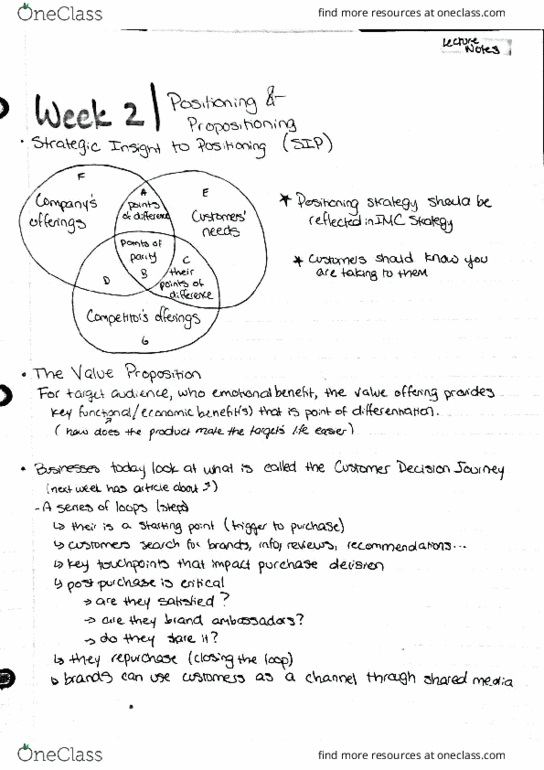 OneClass
find more resources at oneclass.com
Lecture
Notes
Week 2 | Positioning &
Propositioning
• Strategic Insight to Positioning (SIP)
F
Company's
offerings
A
points
of difference
E
Customers'
needs
Points of
parity
B
C
their
points of
difference
D
Competitor's offerings
G
* Positioning strategy should be
reflected in IMC strategy
* Customers should know you
are talking to them
• The Value Proposition
For target audience, who emotional benefit, the value offering provides
key functional/economic benefit(s) that is point of differentiation.
(how does the product make the target's life easier)
• Businesses today look at what is called the Customer Decision Journey
(next week has article about it)
- A series of loops (steps)
↳ their is a starting point (trigger to purchase)
↳ customers search for brands, info, reviews, recommendations...
↳ key touchpoints that impact purchase decision
↳ post purchase is critical
→ are they satisfied?
→ are they brand ambassadors?
→ do they share it?
↳ they repurchase (closing the loop)
↳ brands can use customers as a channel through shared media
OneClass
find more resources at oneclass.com